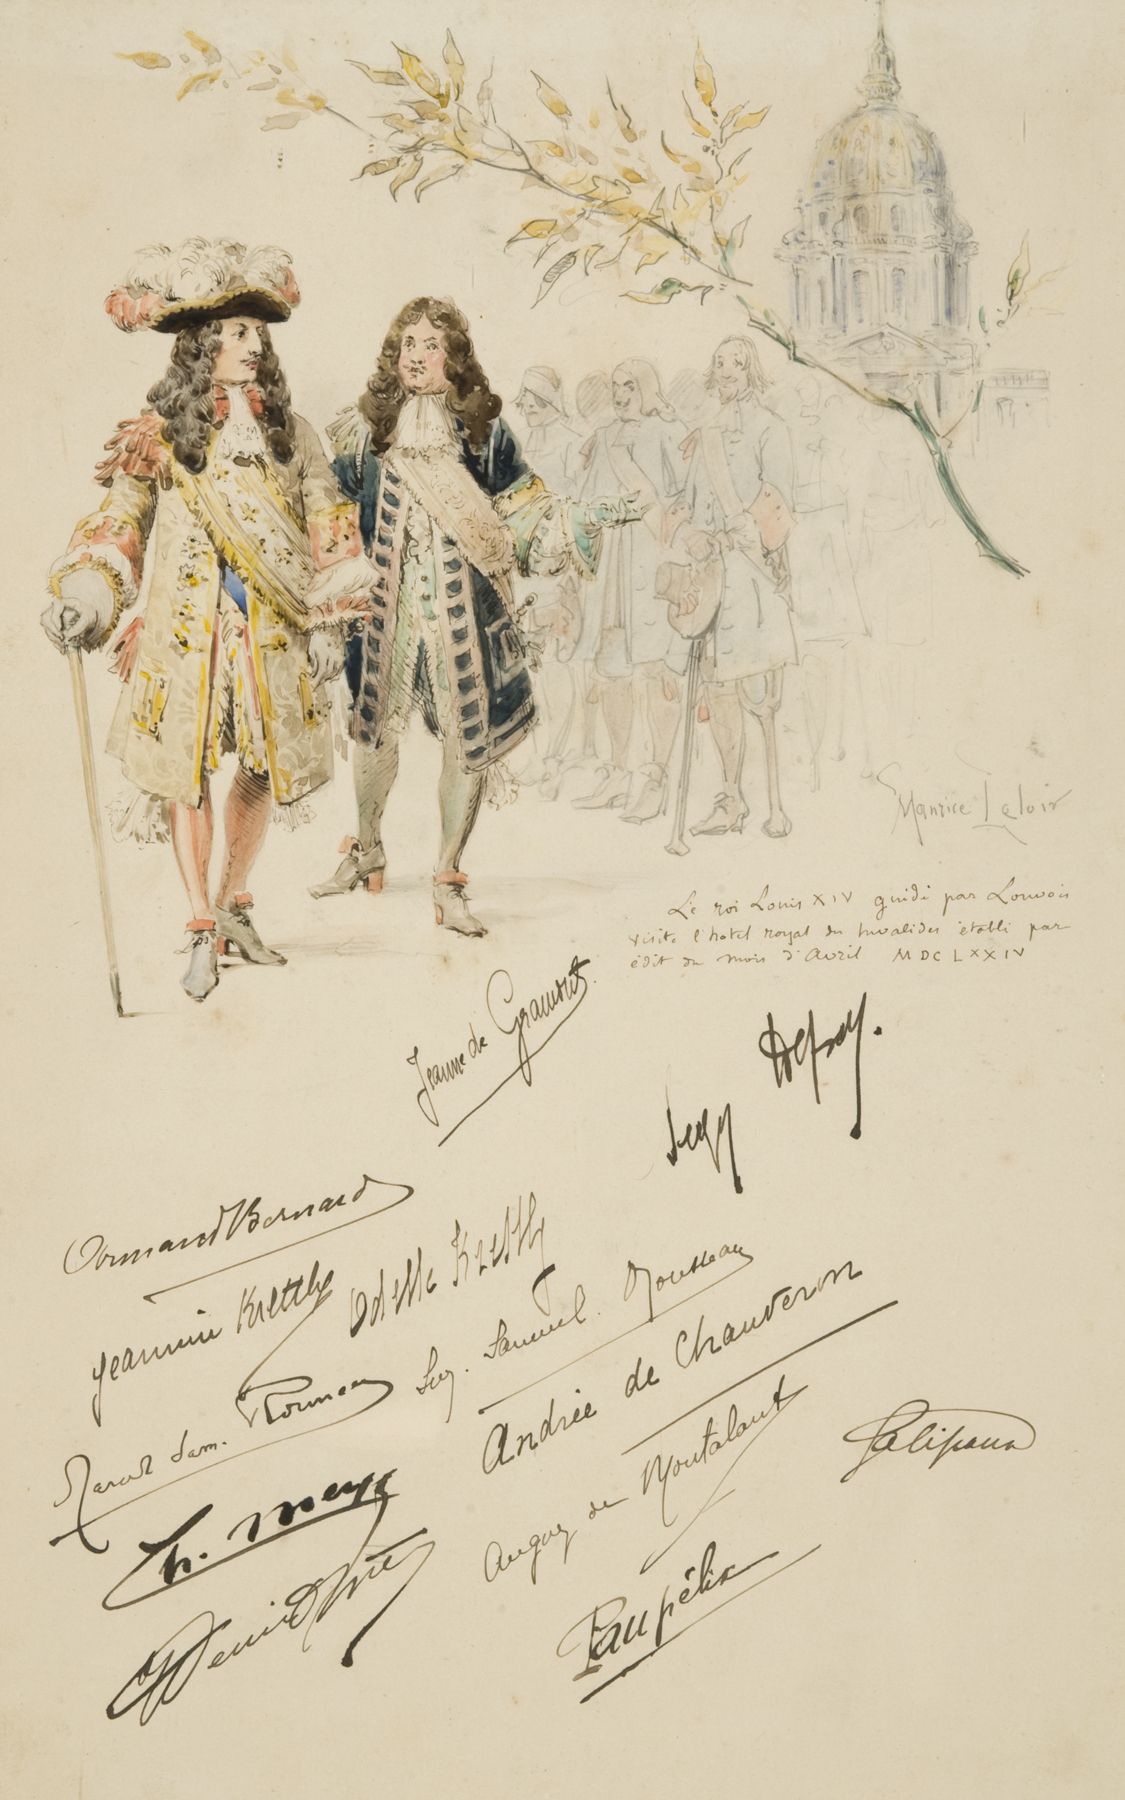 Maurice Leloir
Le roi Louis XIV guidé par Louvois
visite l'hotel royal des Invalides établi par
édit du mois d'Avril MDCLXXIV
Jeanne de Gramont.
Suzy Delsol.
Armand Bernard
Jeannine Kretlly
Odette Kretlly
Marcel Sam. Rousseau
Suz. Samuel. Rousseau
Andrée de Chauveron
Th. Meyx
Auguez de Montalant
Galipaux
Denis d'Inès
Paupélix